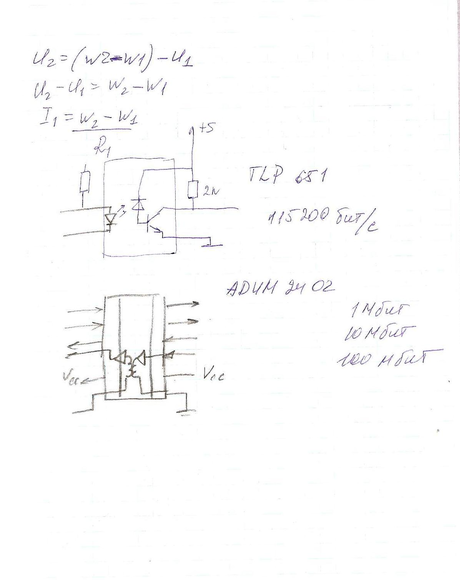 U₂ = (W2 - W1) - U₁
U₂ - U₁ = W₂ - W₁
I₁ = W₂ - W₁
R₁
+5
2к
TLP 651
115200 бит/с
ADUM 2402
1 Мбит
10 Мбит
100 Мбит
Vcc
Vcc